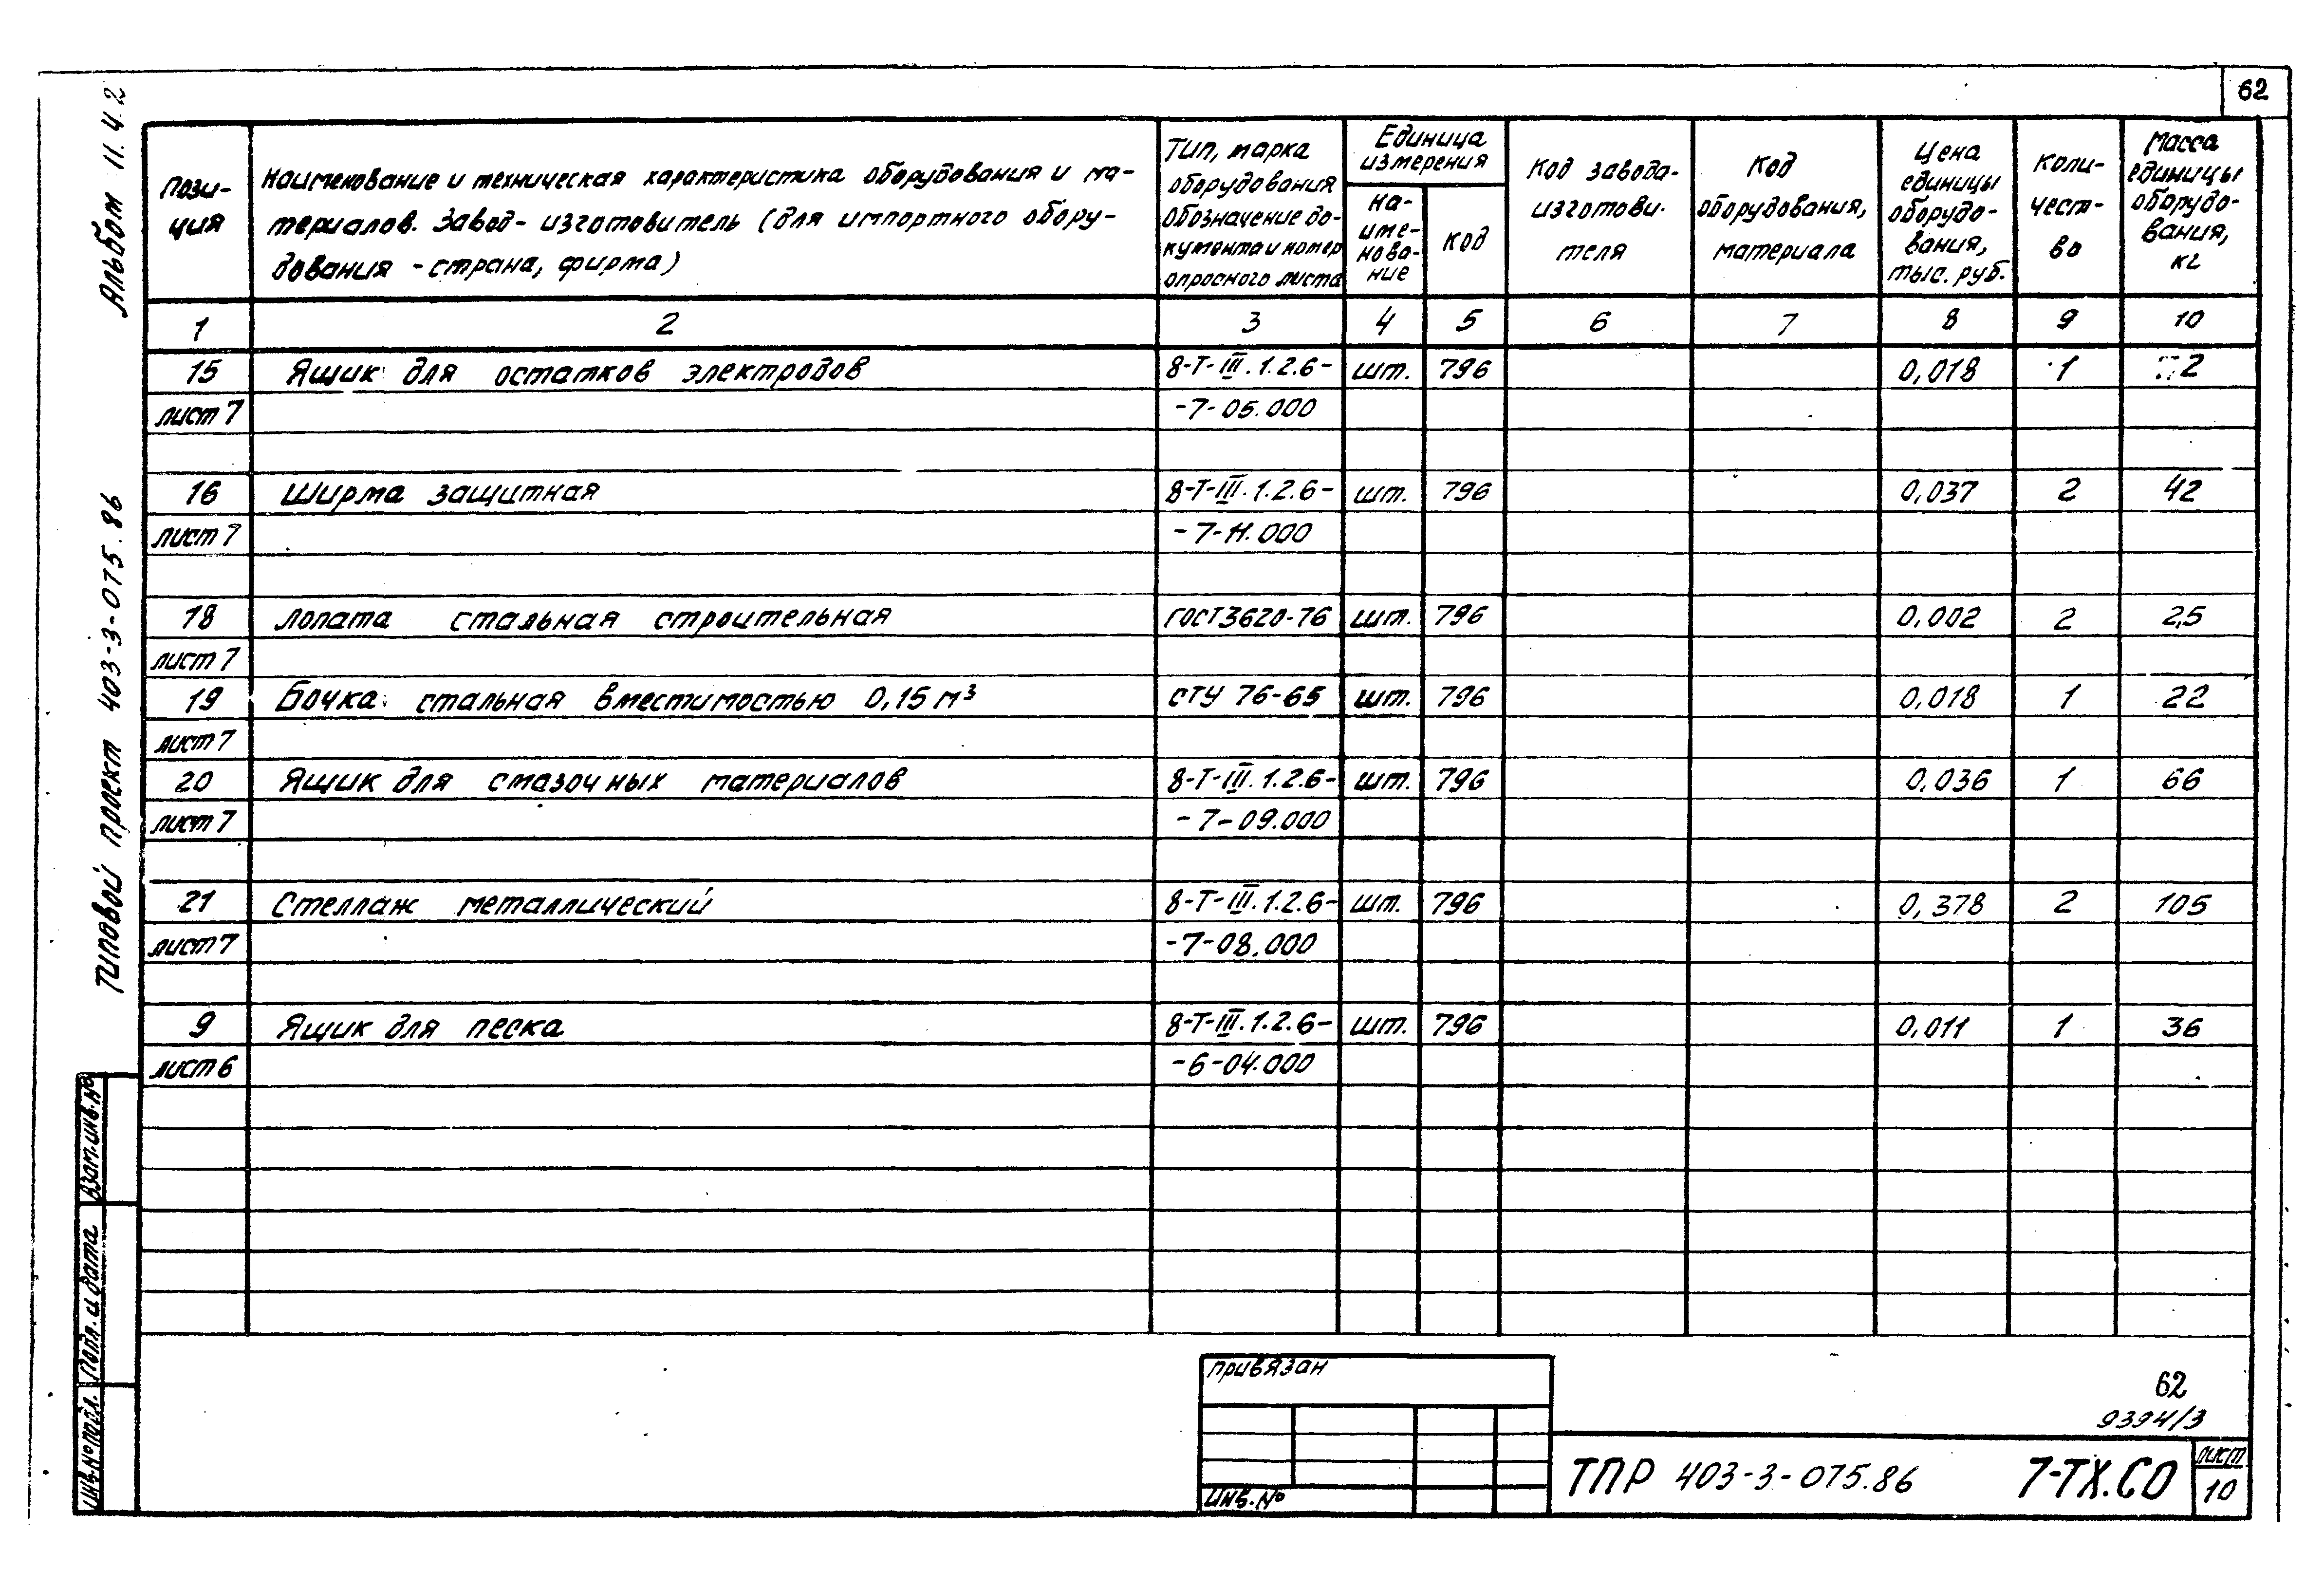 62
Альбом 11.Ч.2
Типовой проект 403-3-075.86
Пози-
ция
Наименование и техническая характеристика оборудования и ма-
териалов. Завод-изготовитель (для импортного обору-
дования - страна, фирма)
Тип, марка
оборудования
Обозначение до-
кумента и номер
опросного листа
Единица
измерения
на-
име-
нова-
ние
код
Код завода-
изготови-
теля
Код
оборудования,
материала
Цена
единицы
оборудо-
вания,
тыс. руб.
Коли-
чест-
во
Масса
единицы
оборудо-
вания,
кг
1 2 3 4 5 6 7 8 9 10
15 Ящик для остатков электродов 8-Т-III.1.2.6- шт. 796 0,018 1
лист 7 -7-05.000
16 Ширма защитная 8-Т-III.1.2.6- шт. 796 0,037 2 42
лист 7 -7-11.000
18 Лопата стальная строительная ГОСТ3620-76 шт. 796 0,002 2 2,5
лист 7
19 Бочка стальная вместимостью 0,15 м³ СТУ 76-65 шт. 796 0,018 1 22
лист 7
20 Ящик для смазочных материалов 8-Т-III.1.2.6- шт. 796 0,036 1 66
лист 7 -7-09.000
21 Стеллаж металлический 8-Т-III.1.2.6- шт. 796 0,378 2 105
лист 7 -7-08.000
9 Ящик для песка 8-Т-III.1.2.6- шт. 796 0,011 1 36
лист 6 -6-04.000
Взам.инв.№
Подп. и дата
Инв.№подл.
Привязан
Инв.№
62
9394/3
ТПР 403-3-075.86 7-ТХ.СО
лист
10